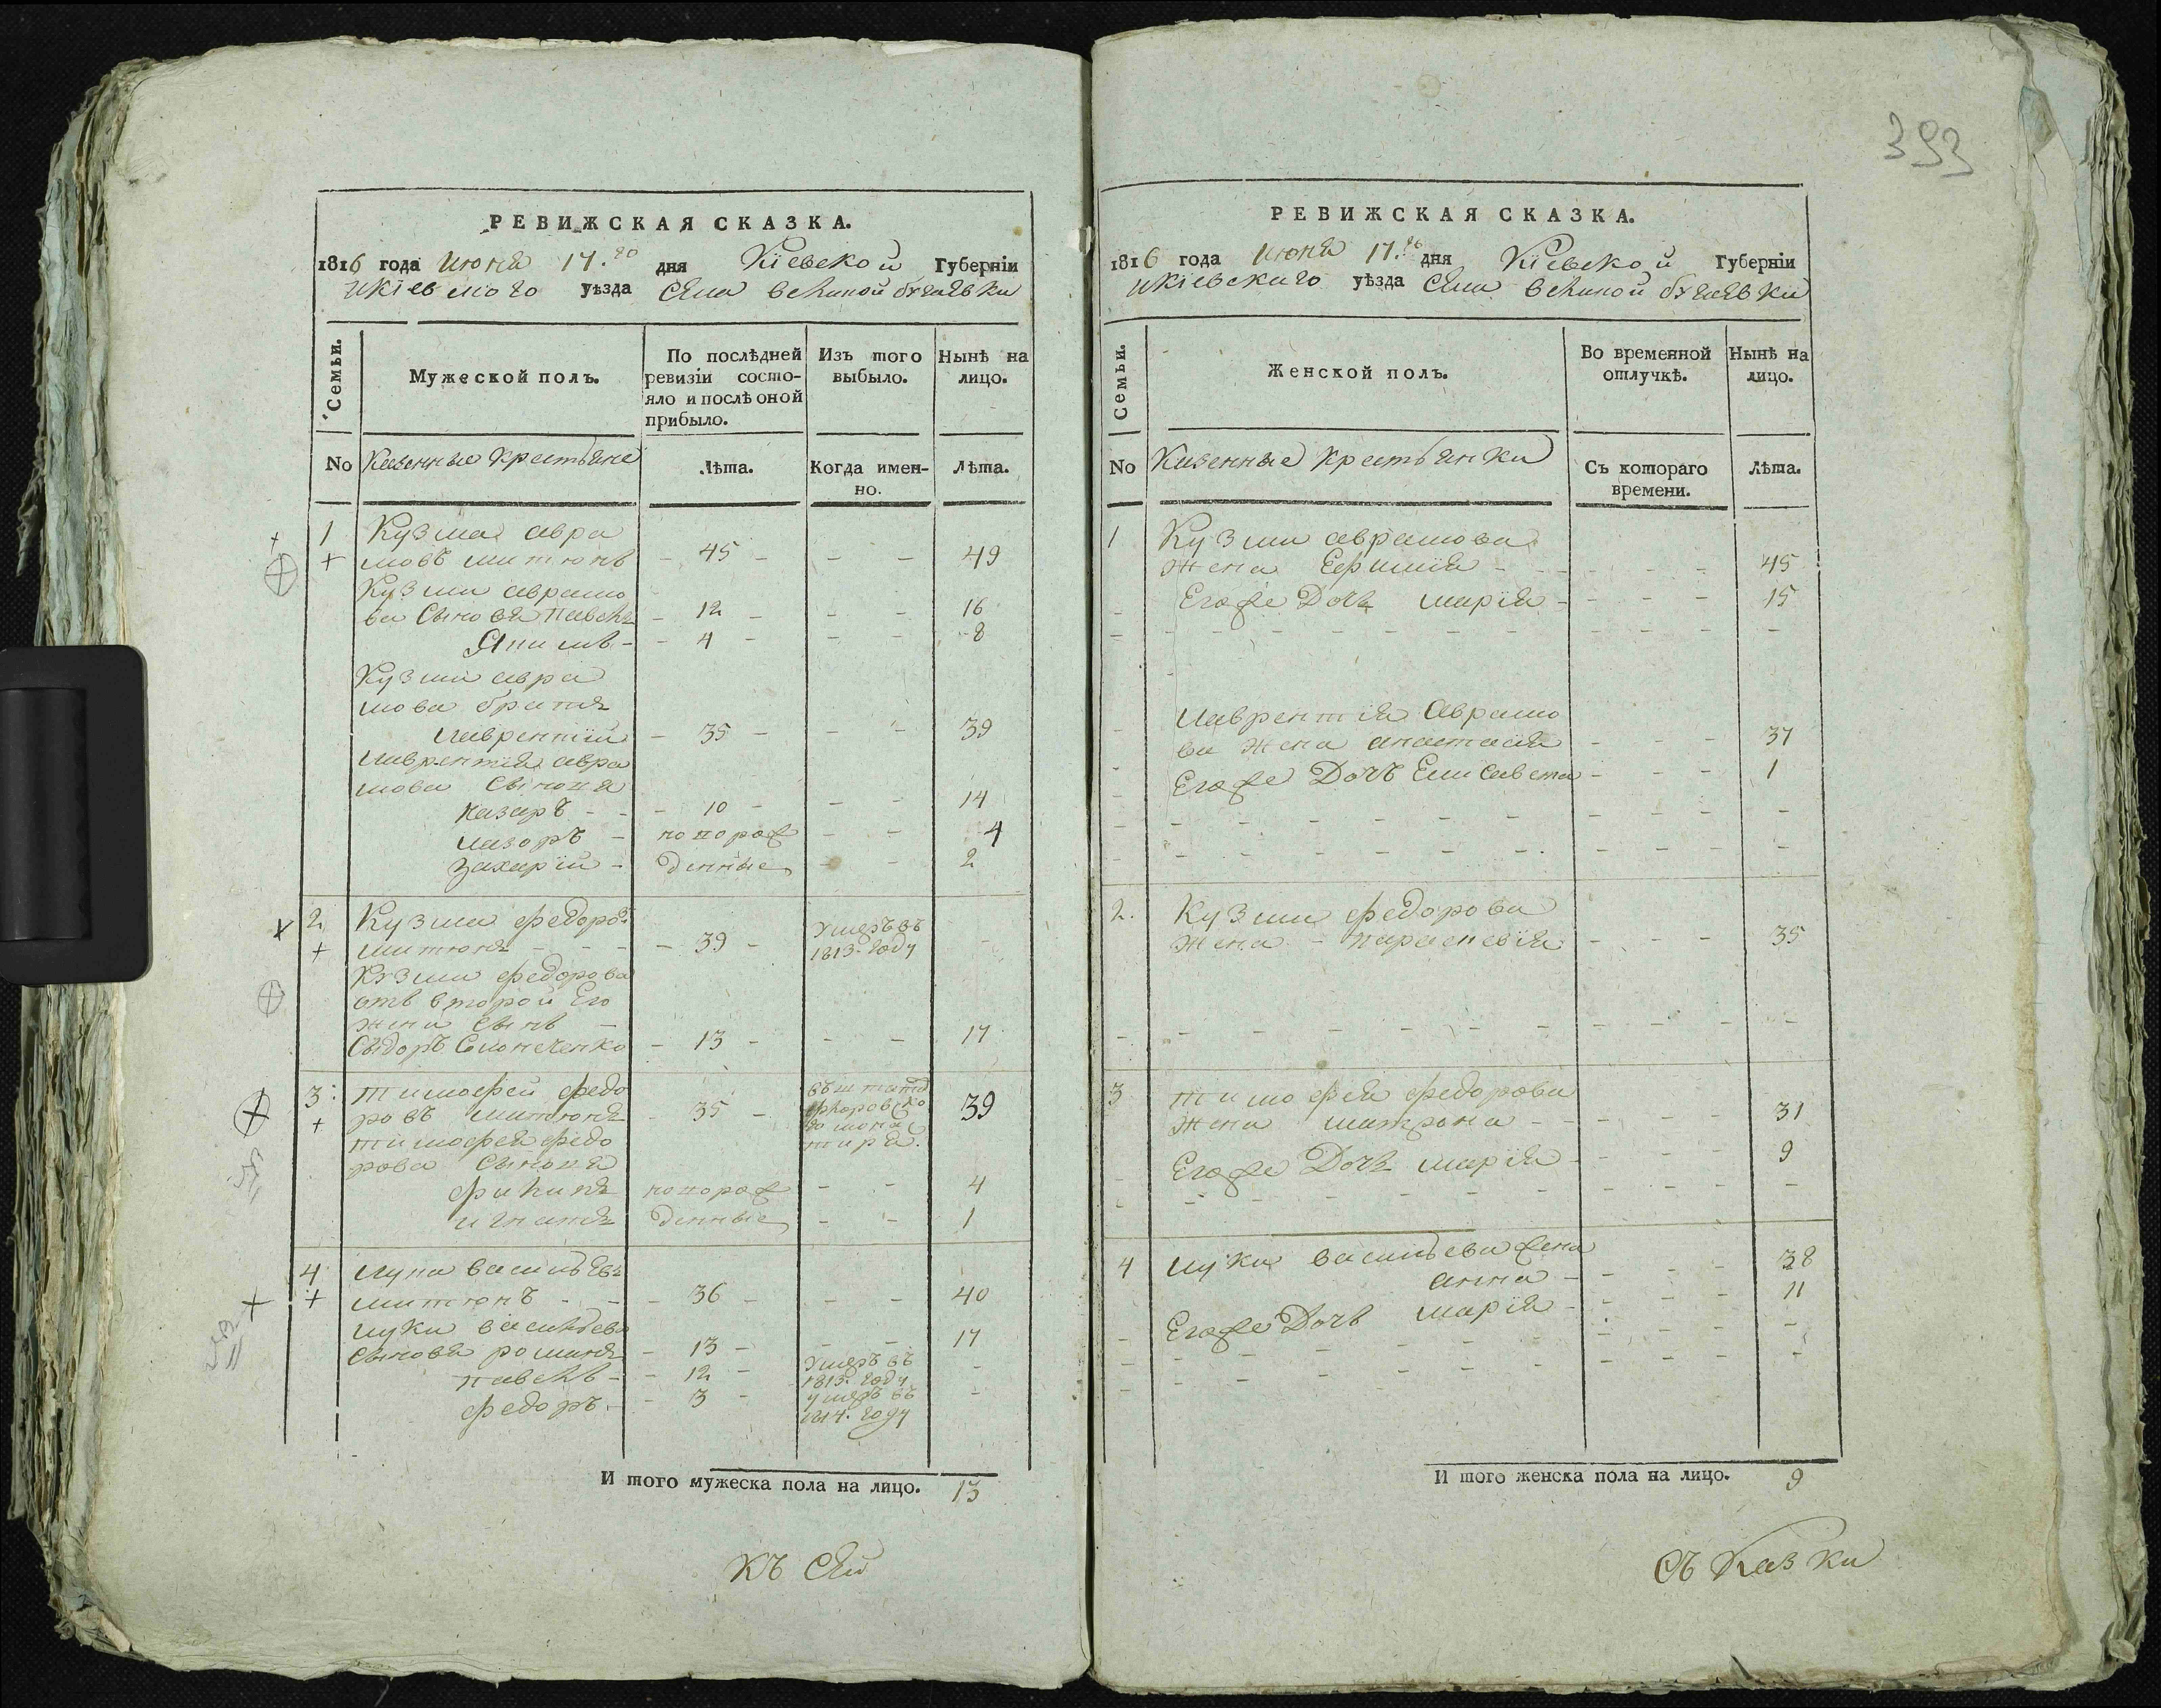 393
РЕВИЖСКАЯ СКАЗКА.
1816 года июня 17.го дня Кіевской Губерніи
икіевского уѣзда села великой бугаевки
Семьи.
Мужеской полъ.
По послѣдней ревизіи состо-
яло и послѣ оной
прибыло.
Изъ того
выбыло.
Нынѣ на
лицо.
No Казенные крестьяне
Лѣта.
Когда имен-
но.
Лѣта.
1 Кузма авра
мовъ митюнъ - 45 - - - 49
Кузми аврамо
ва Сыновя павелъ - 12 - - - 16
- 4 - - - 8
Кузми авра
мова братъ
лаврентій - 35 - - - 39
лаврентія авра
мова Сыновя
назаръ - - 10 - - - 14
лазоръ - новорож - - 4
захарій - денные - - 2
2 Кузма федоровъ
митюнъ - - - 39 - умеръ въ 1813. году -
Кузми федорова
отъ второй Его
жени Сынъ -
Сыдоръ - 13 - - - 17
3: тимофей федо
ровъ митюнъ - 35 - 39
тимофея федо
рова Сыновя
филипъ новорож - - 4
игнатъ денные - - 1
4 лука василъевъ
митюнъ - - - 36 - - - 40
луки василъева
Сыновя романъ - 13 - - - 17
павелъ - - 12 - умеръ въ 1813. году -
федоръ - - 3 - умеръ въ 1814. году -
И того мужеска пола на лицо. 13
къ сей
РЕВИЖСКАЯ СКАЗКА.
1816 года июня 17.го дня Кіевской Губерніи
икіевского уѣзда села великой бугаевки
Семьи.
Женской полъ.
Во временной
отлучкѣ.
Нынѣ на
лицо.
No Казенные крестьянки
Съ котораго
времени.
Лѣта.
1 Кузми аврамова
жена - - - - 45
Егоже Дочь марія - - - - 15
лаврентія аврамо
ва жена анастасія - - - 37
Егоже Дочъ Елисавета - - - 1
2. Кузми федорова
жена - параскевія - - - 35
3 тимофея федорова
жена матрона - - - - 31
Егоже Дочь марія - - - - 9
4 луки василъева жена
анна - - - - 38
Егоже Дочъ марія - - - - 11
И того женска пола на лицо. 9
съказки